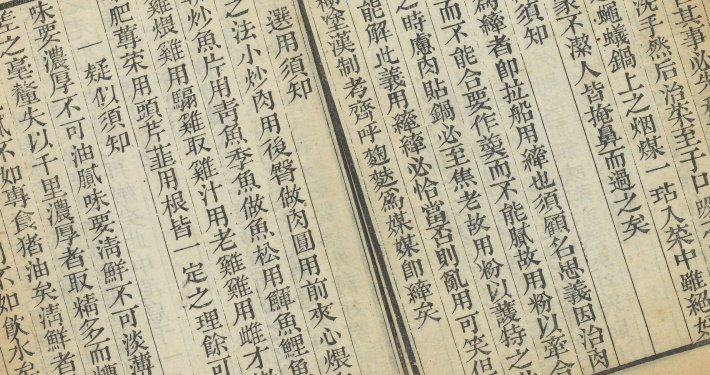 其事必先
洗手然后治菜至于口吸
蠅蟻鍋上之烟煤一玷入菜中雖絕好
家不潔人皆掩鼻而過之矣
須知
為縴者即拉船用縴也須顧名思義因治肉
而不能合要作羹而不能膩故用粉以牽合
之時慮肉貼鍋必至焦老故用粉以護持之
能解此義用縴縴必恰當否則亂用可笑但
漢制考齊呼麴麩為媒媒即縴矣
選用須知
之法小炒肉用後臀做肉圓用前夾心煨
炒魚片用青魚季魚做魚松用鯶魚鯉魚
雞煨雞用騸雞取雞汁用老雞雞用雌才
肥蓴菜用頭芹韭用根皆一定之理餘可
一疑似須知
味要濃厚不可油膩味要淸鮮不可淡薄
差之毫釐失以千里濃厚者取精多而糟
不如專食猪油矣淸鮮者
不如飲水矣